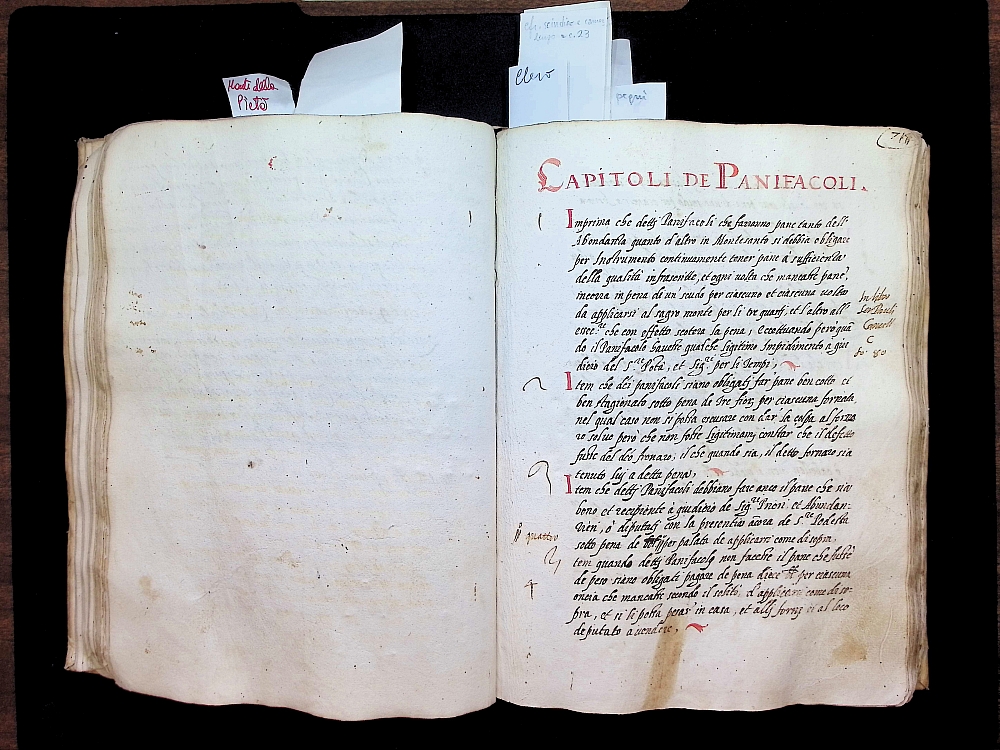 Monti della
Pietà
c. 23
Clero
pegni
CAPITOLI DE PANIFACOLI.
Imprima che detti Panifacoli che faranno pane tanto dell'
Abondantia quanto d'altro in Montesanto si debbia obligare
per Instrumento continuamente tener pane a sufficientia
della qualità infrascritta, et ogni uolta che mancasse pane,
incorra in pena di un' scudo per ciascuno et ciascuna uolta
da applicarsi al sagro monte per li tre quarti, et l'altro all'
essec.re che con effetto scotera la pena, Eccettuando però quã
do il Panifacolo hauesse qualche ligitimo Impidimento a giu
ditio del S.re Potà, et Sig.ri per li Tempi,
Item che dei panifacoli siano obligati far pane ben cotto et
ben stagionato sotto pena de tre fior. per ciascuna fornata
nel qual caso non si possa escusare con dar la colpa al forna
ro saluo però che non fosse ligitimam. constar che il defetto
fusse del dco fornaro, il che quando sia, il detto fornaro sia
tenuto lui a detta pena,
Item che detti Panifacoli debbiano fare onze il pane che sia
bono et recipiente à giuditio de Sig.ri Priori et Abundan-
tieri, ò deputati con la presentia ãcora de S.re Podesta
sotto pena de per palata de applicarsi come di sopra.
quattro
tem quando detti Panifacolo non facesse il pane che fusse
de peso siano obligati pagare de pena diece per ciascuna
oncia che mancasse secondo il solito, d'applicarsi come di so-
pra, et si li possa pesar in casa, et alli forni et al loco
deputato a uendere,
In libro
Ser Pauli
Cancell
C
fo. 80